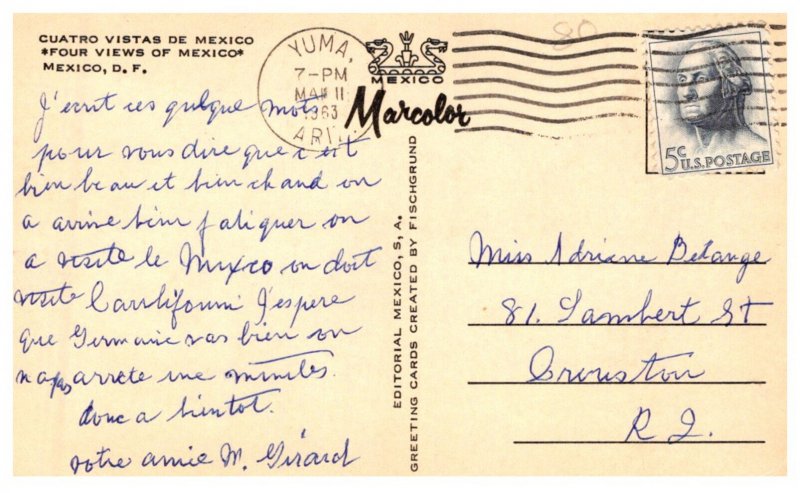 CUATRO VISTAS DE MEXICO
*FOUR VIEWS OF MEXICO*
MEXICO, D. F.
YUMA,
7-PM
MAR 11
1963
ARIZ.
MEXICO
Marcolor
80
5c U.S. POSTAGE
J'ecrit ces quelque mots
pour vous dire que c'est
bien beau et bien chaud on
a arrive bien fatiguer on
a visite le Mexico on doit
visite Carlifourni J'espere
que Germaine vas bien on
na pas arrete une minutes.
donc a bientot.
votre amie M. Girard
EDITORIAL MEXICO, S, A.
GREETING CARDS CREATED BY FISCHGRUND
Miss Adriane Belange
81. Lambert St
Crouston
R I.